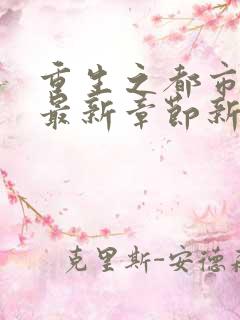 重生之都市
最新章节新
克里斯-安德森